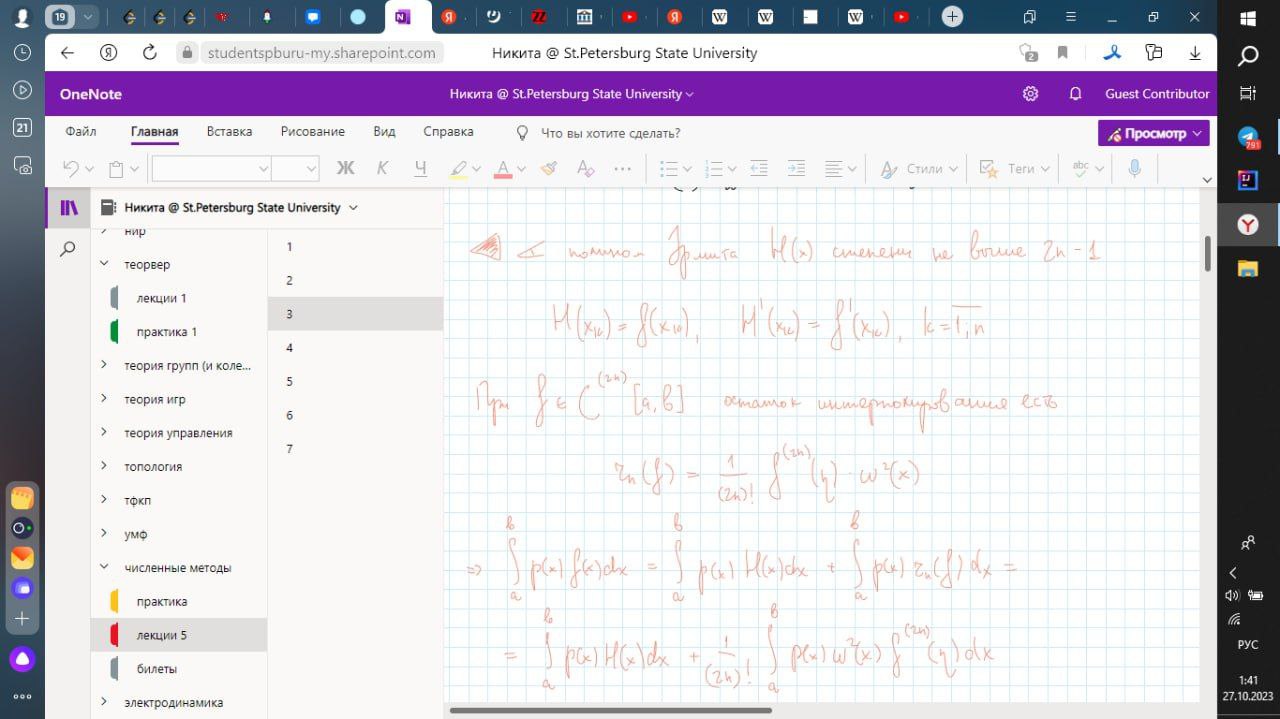 19
studentspburu-my.sharepoint.com
Никита @ St.Petersburg State University
2
OneNote
Никита @ St.Petersburg State University
Guest Contributor
Файл
Главная
Вставка
Рисование
Вид
Справка
Что вы хотите сделать?
Просмотр
Ж
К
Ч
А
Стили
Теги
abc
Никита @ St.Petersburg State University
нир
теорвер
лекции 1
практика 1
теория групп (и коле...
теория игр
теория управления
топология
тфкп
умф
численные методы
практика
лекции 5
билеты
электродинамика
1
2
3
4
5
6
7
∢ полином Эрмита H(x) степени не выше 2n-1
H(xₖ) = f(xₖ), H'(xₖ) = f'(xₖ), k = \overline{1,n}
При f ∈ C^{(2n)} [a,b] остаток интерполирования есть
r_n(f) = \frac{1}{(2n)!} f^{(2n)}(η) · ω²(x)
⇒ \int_a^b p(x) f(x) dx = \int_a^b p(x) H(x) dx + \int_a^b p(x) r_n(f) dx =
= \int_a^b p(x) H(x) dx + \frac{1}{(2n)!} \int_a^b p(x) ω²(x) f^{(2n)}(η) dx
21
293
РУС
1:41
27.10.2023